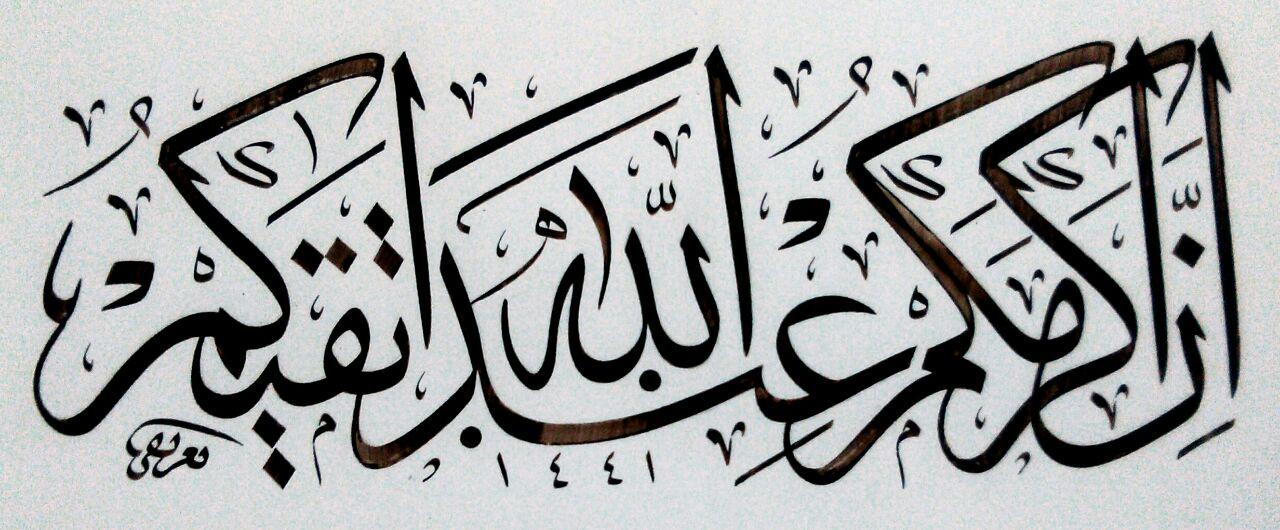 اِنَّ اكرمكم عند اللهُ اتقيكم
١٤٤١